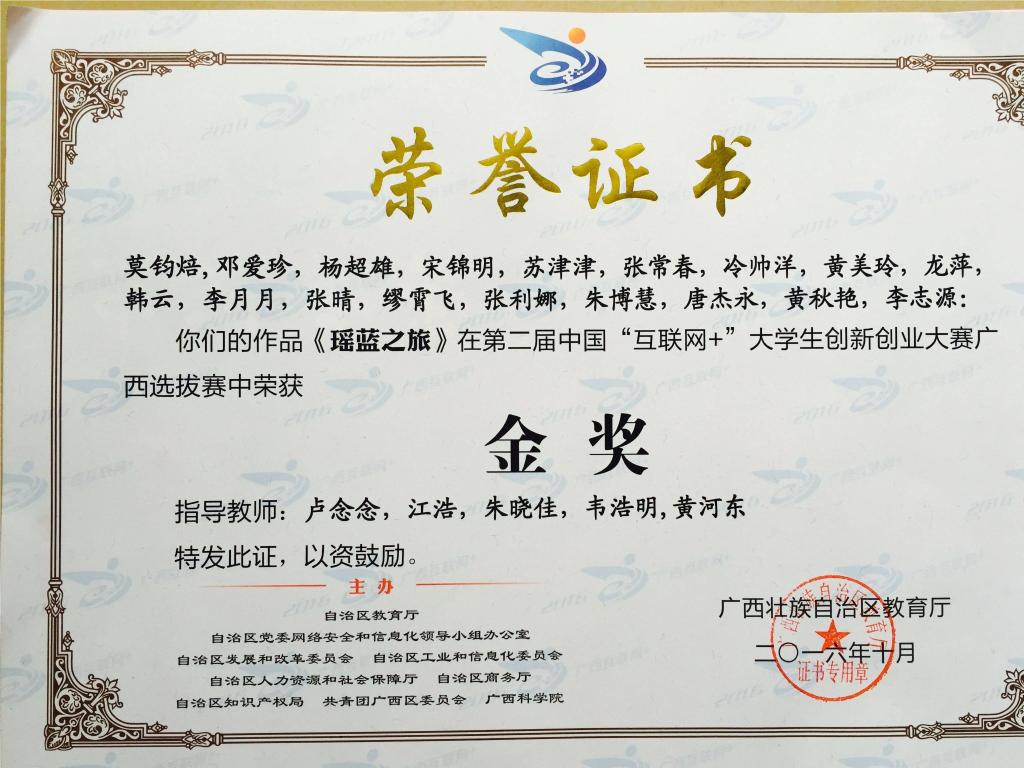 荣誉证书
莫钧焙,邓爱珍，杨超雄，宋锦明，苏津津，张常春，冷帅洋，黄美玲，龙萍，
韩云，李月月，张晴，缪霄飞，张利娜，朱博慧，唐杰永，黄秋艳，李志源：
你们的作品《瑶蓝之旅》在第二届中国“互联网+”大学生创新创业大赛广
西选拔赛中荣获
金奖
指导教师：卢念念，江浩，朱晓佳，韦浩明,黄河东
特发此证，以资鼓励。
主办
自治区教育厅
自治区党委网络安全和信息化领导小组办公室
自治区发展和改革委员会 自治区工业和信息化委员会
自治区人力资源和社会保障厅 自治区商务厅
自治区知识产权局 共青团广西区委员会 广西科学院
广西壮族自治区教育厅
二〇一六年十月
广西壮族自治区教育厅
证书专用章